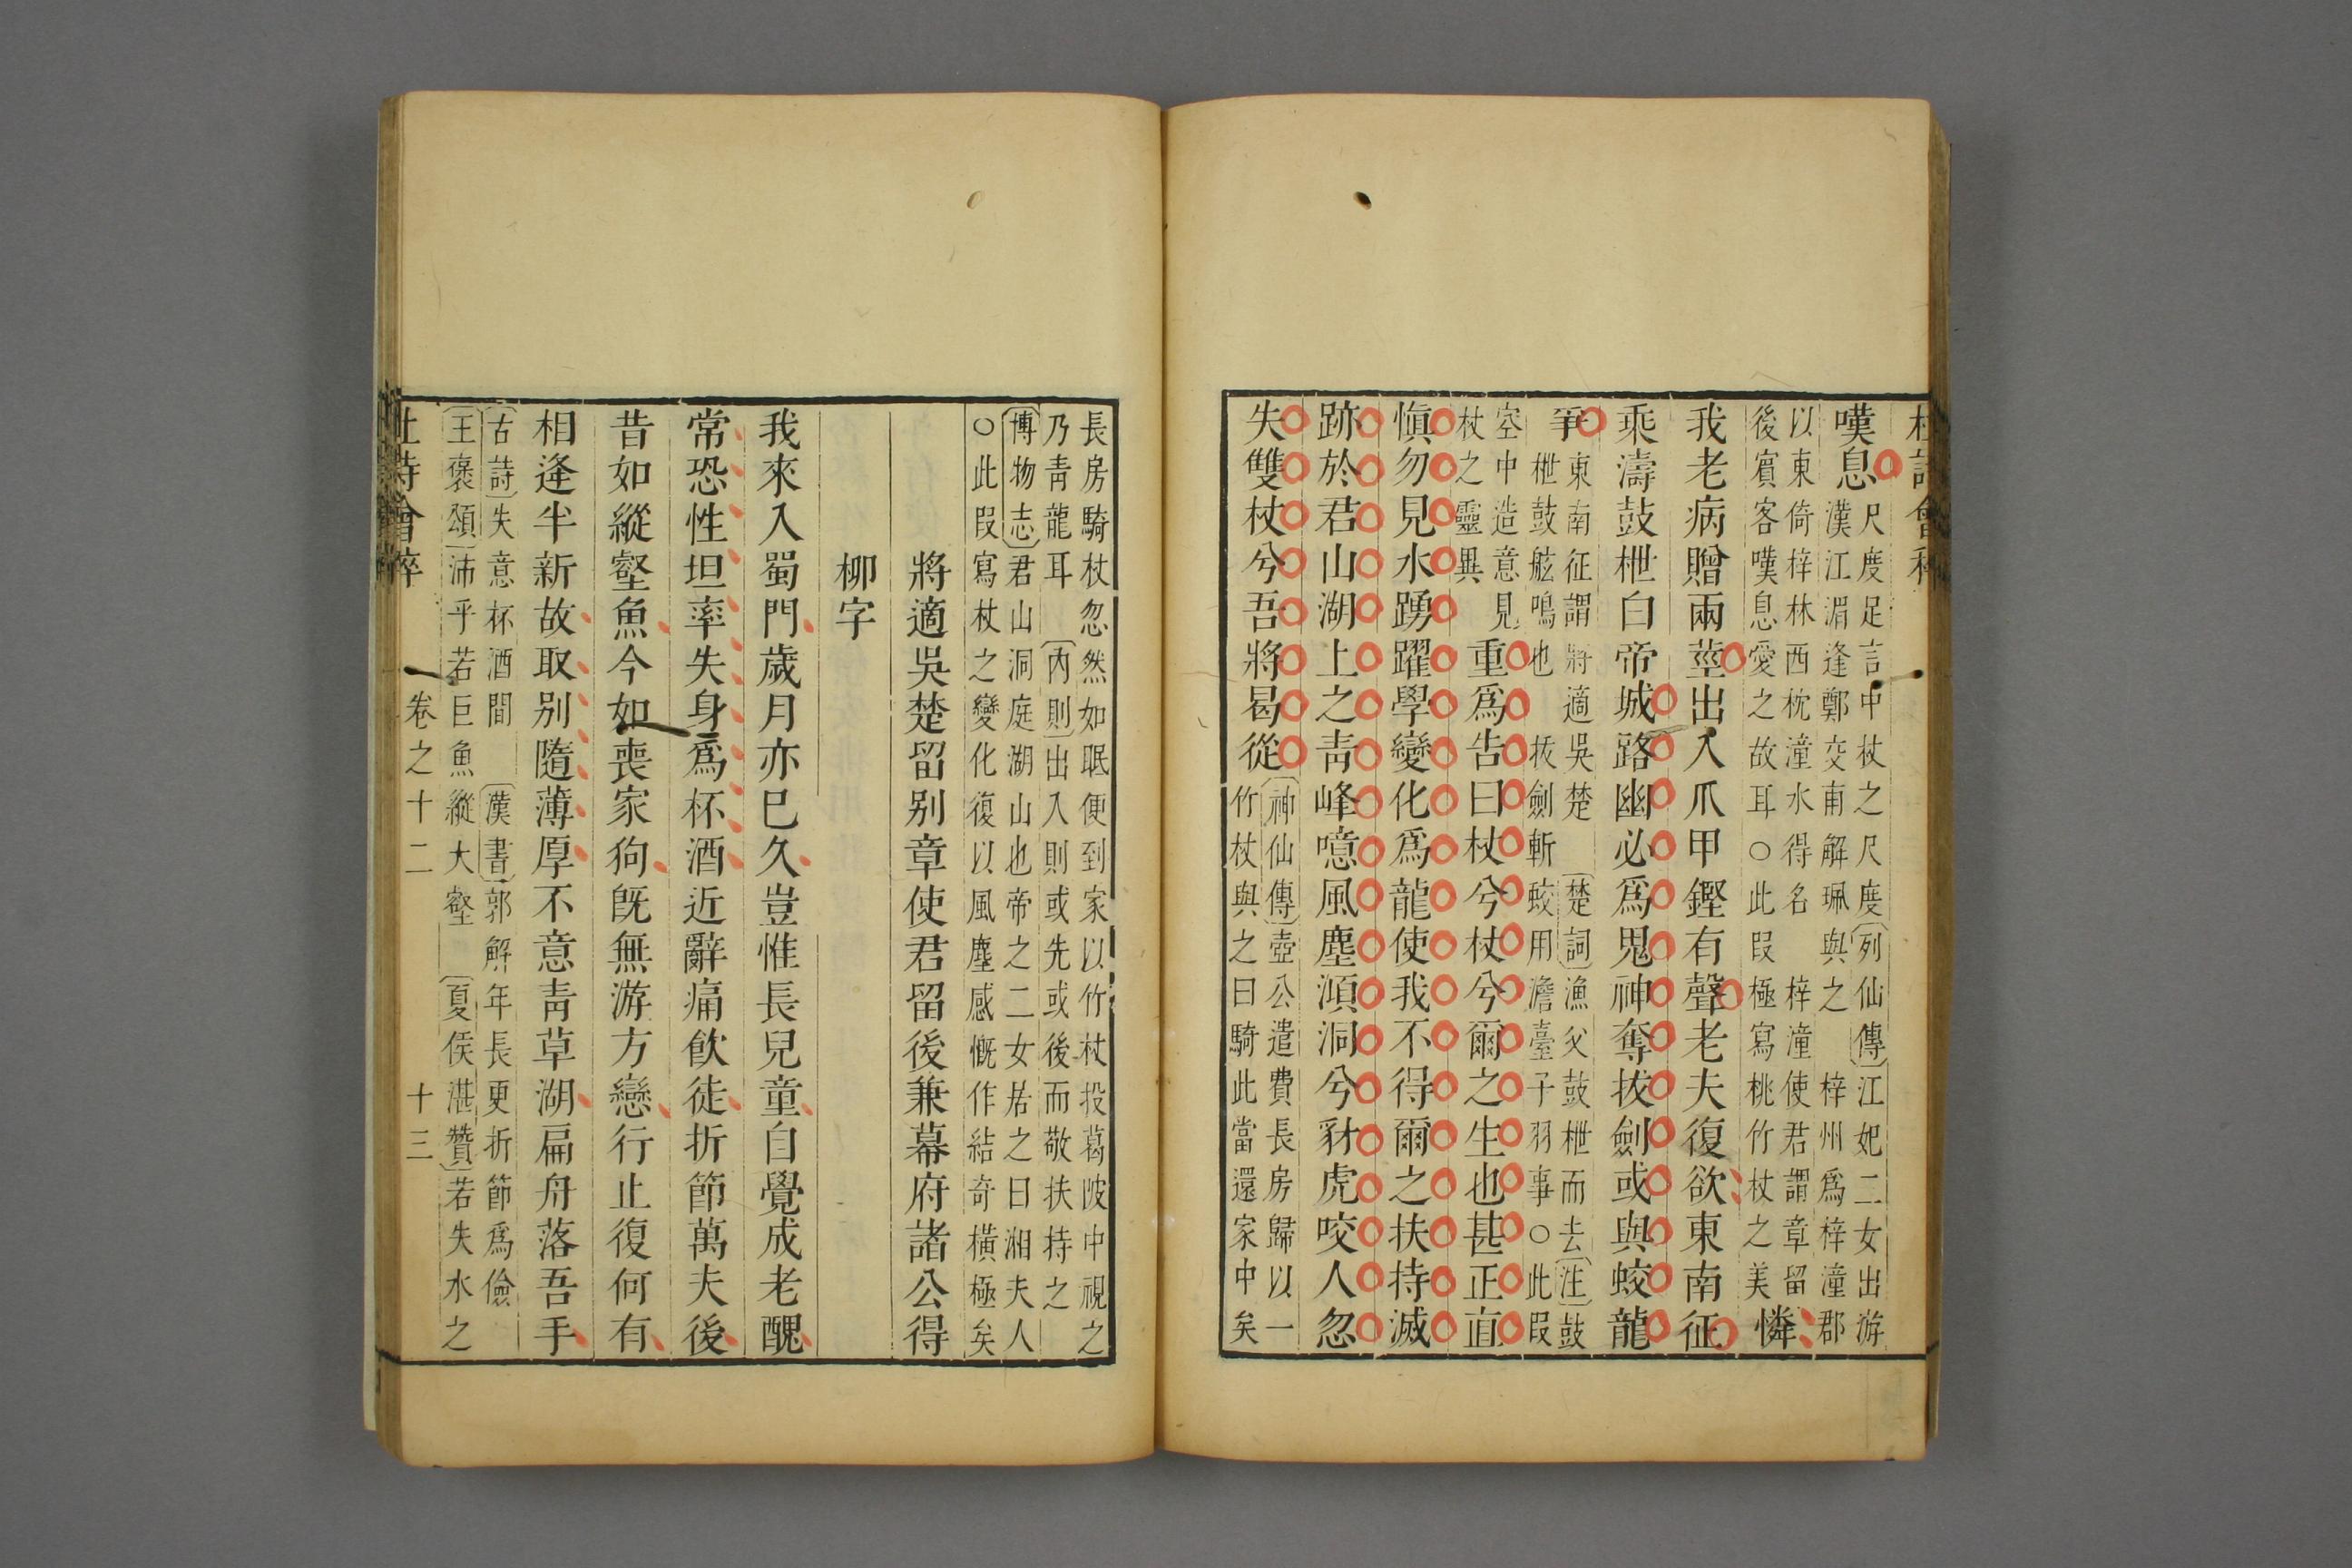 嘆息
尺度足言中杖之尺度列仙傳江妃二女出游
漢江湄逢鄭交甫解珮與之　梓州爲梓潼郡
以東倚梓林西枕潼水得名　梓潼使君謂章留
後賓客嘆息愛之故耳○此叚極寫桃竹杖之美
憐
我老病贈兩莖出入爪甲鏗有聲老夫復欲東南征
乘濤鼓枻白帝城路幽必爲鬼神奪拔劍或與蛟龍
爭
東南征謂將適吳楚　楚詞漁父鼓枻而去注鼓
枻鼓舷鳴也　拔劍斬蛟用澹臺子羽事○此叚
空中造意見
杖之靈異
重爲告曰杖兮杖兮爾之生也甚正直
愼勿見水踴躍學變化爲龍使我不得爾之扶持滅
跡於君山湖上之靑峰噫風塵澒洞兮豺虎咬人忽
失雙杖兮吾將曷從
神仙傳壺公遣費長房歸以一
竹杖與之曰騎此當還家中矣
長房騎杖忽然如眠便到家以竹杖投葛陂中視之
乃靑龍耳　內則出入則或先或後而敬扶持之
博物志君山洞庭湖山也帝之二女居之曰湘夫人
○此叚寫杖之變化復以風塵感慨作結奇橫極矣
將適吳楚留别章使君留後兼幕府諸公得
柳字
我來入蜀門歲月亦巳久豈惟長兒童自覺成老醜
常恐性坦率失身爲杯酒近辭痛飮徒折節萬夫後
昔如縱壑魚今如喪家狗旣無游方戀行止復何有
相逢半新故取别隨薄厚不意靑草湖扁舟落吾手
古詩失意杯酒間　漢書郭解年長更折節爲儉
王褒頌沛乎若巨魚縱大壑　夏侯湛贊若失水之
杜詩會稡　卷之十二　十三